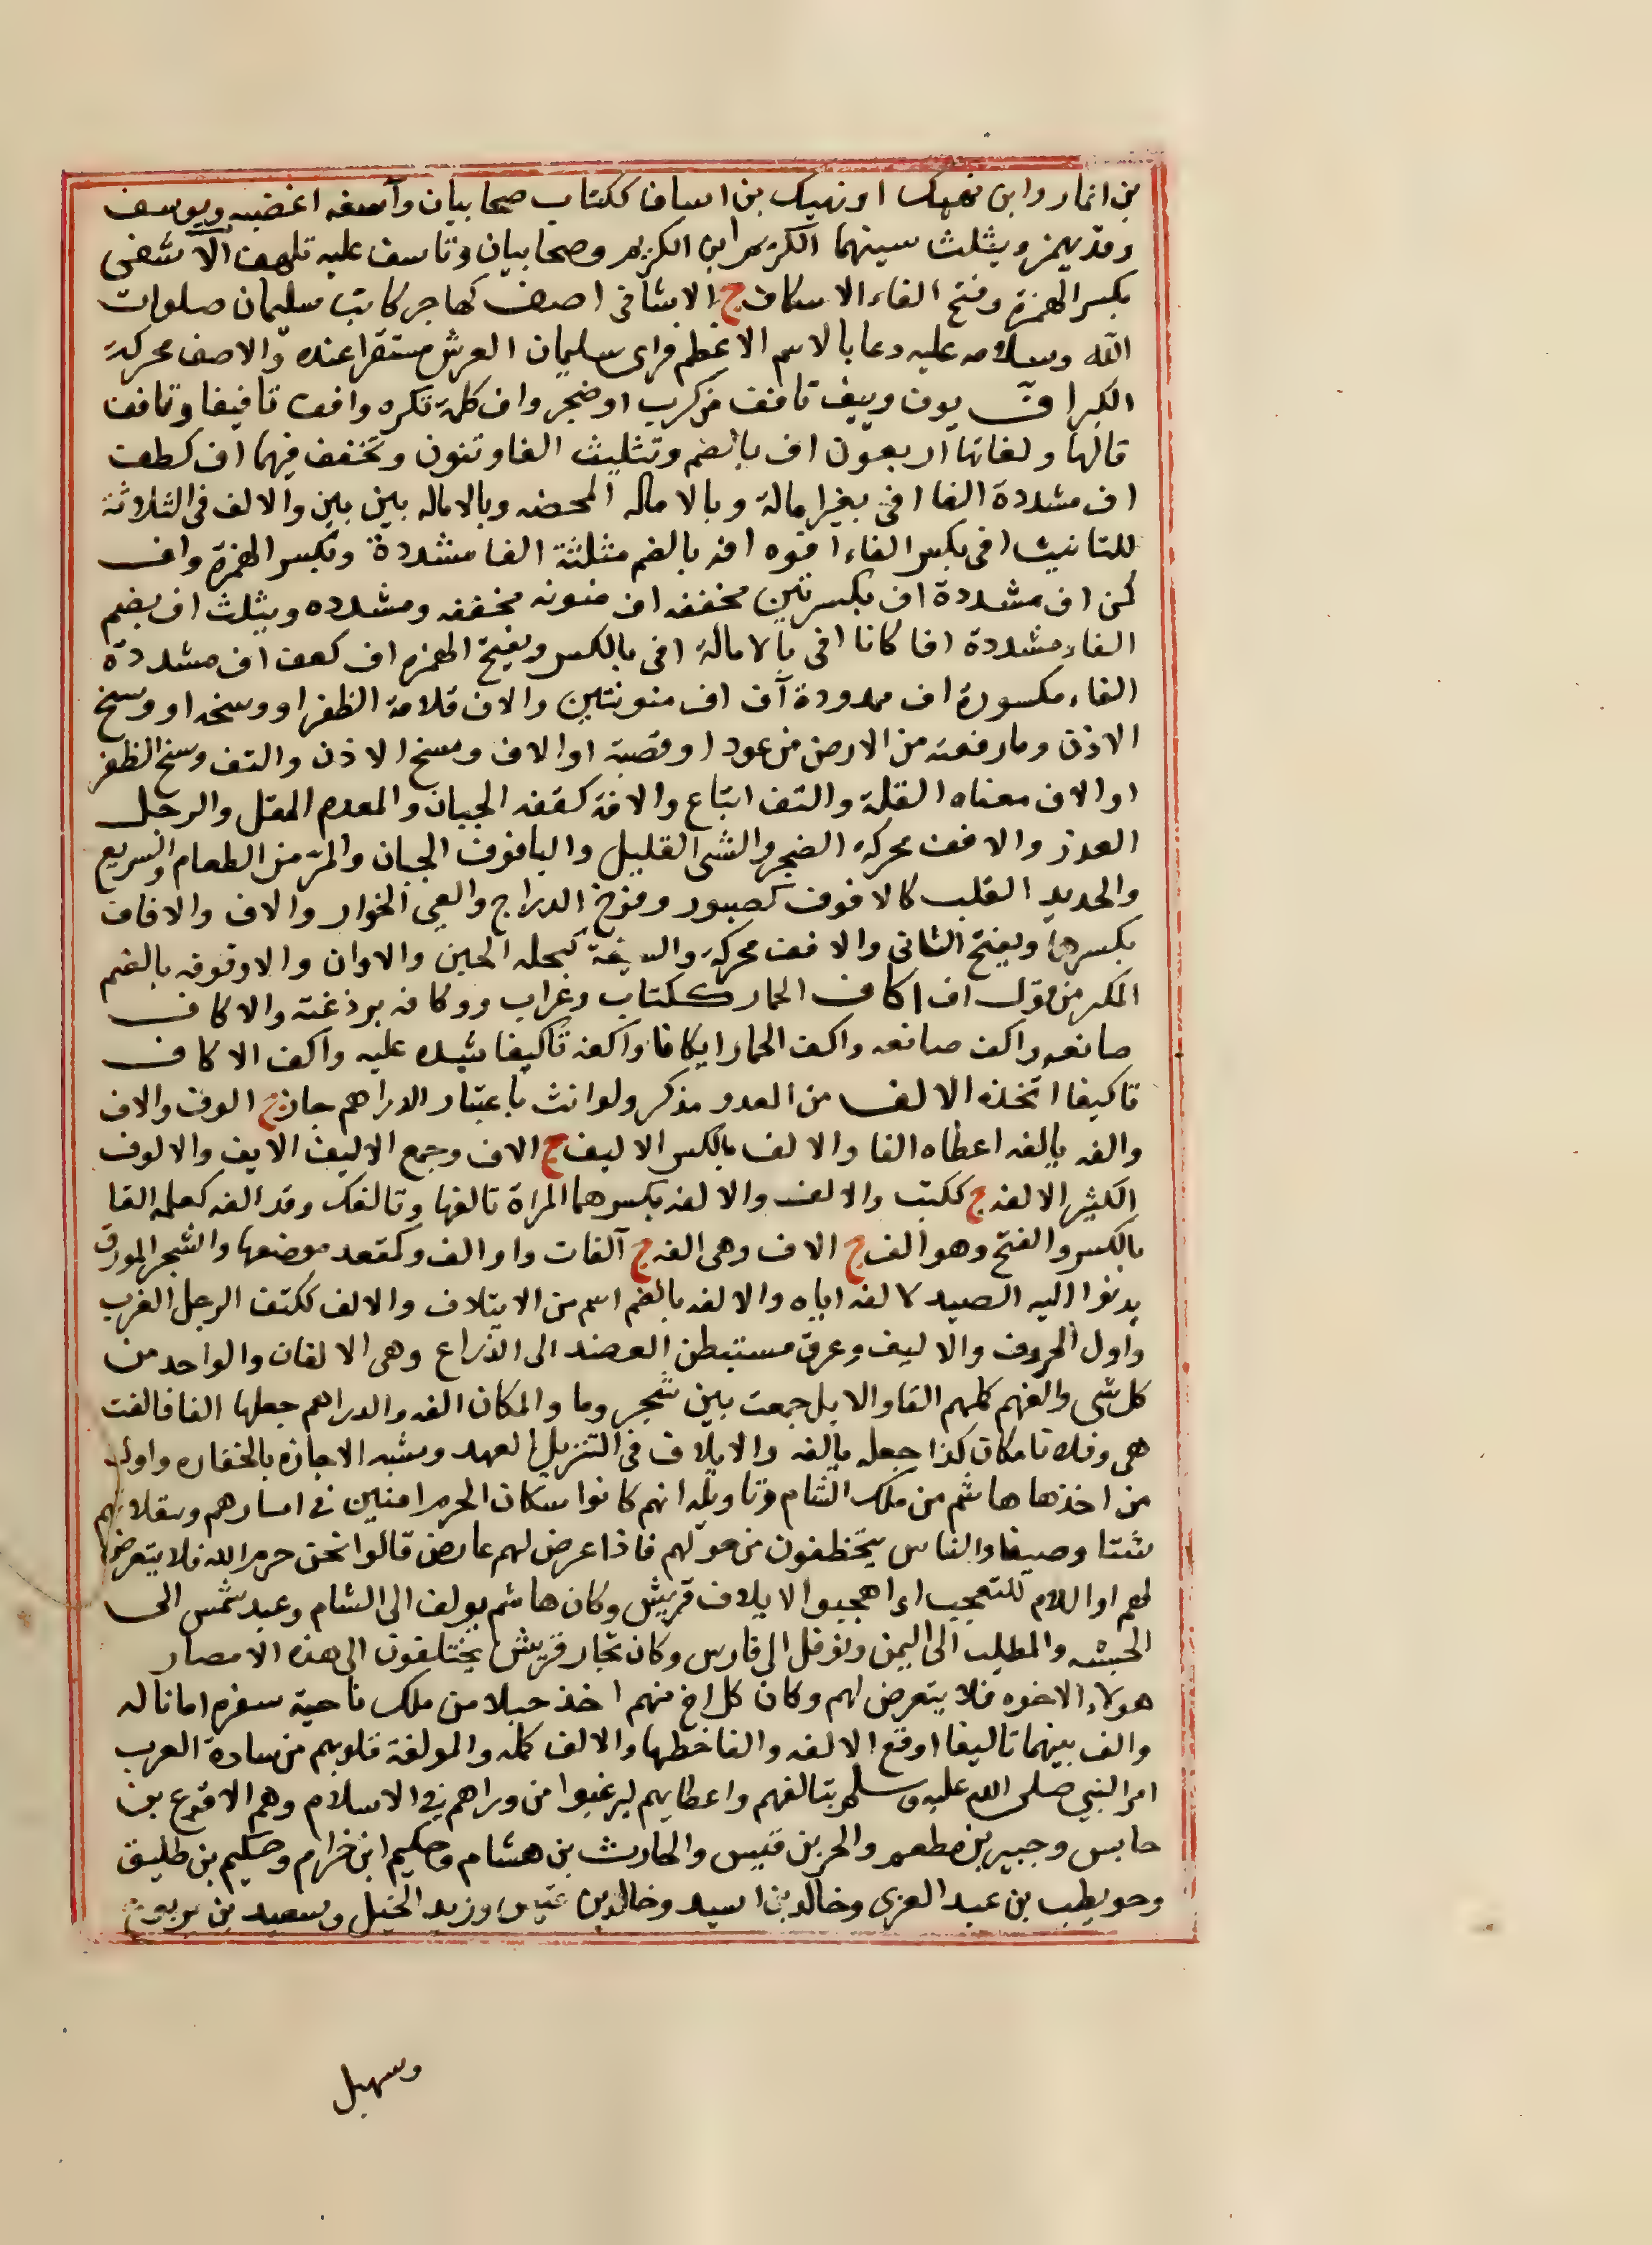 بن انمار وابن نهيك او نهيك بن اساف ككتاب صحابيان وآسفه اغضبه ويوسف
وقد يهمز ويثلث سينهما الكريم ابن الكريم وصحابيان وتاسف عليه تلهف الاشفى
بكسر الهمزة وفتح الفاء الاسكاف ج الاشافى اصف كهاجر كاتب سليمان صلوات
الله وسلامه عليه دعا بالاسم الاعظم فراى سليمان العرش مستقرا عنده والاصف محركة
الكبر اف يوف وييف تافف من كرب او ضجر واف كلمة تكره وافف تافيفا وتافف
قالها ولغاتها اربعون اف بالضم وتثليث الفا وتنون وتخفف فيهما اف كطف
اف مشددة الفا افى بغير امالة وبالاماله المحضه وبالاماله بين بين والالف فى الثلاثة
للتانيث افى بكسر الفاء افوه افه بالضم مثلثة الفا مشددة وتكسر الهمزة واف
كمن اف مشددة اف بكسرتين مخففه اف منونه مخففه ومشدده ويثلث اف بضم
الفاء مشددة افا كانا افى بالامالة افى بالكسر وبفتح الهمزه اف كعف اف مشددة
الفاء مكسورة اف ممدودة آف اف منونتين والاف قلامة الظفر او وسخه او وسخ
الاذن وما رفعته من الارض من عود او قصبة او الاف وسخ الاذن والتف وسخ الظفر
او الاف معناه القلة والتف اتباع والافة كقفه الجبان والمعدم المقل والرجل
القذر والافف محركة الضجر والشى القليل واليافوف الجبان والمر من الطعام والسريع
والحديد القلب كالافوف كصبور وفرخ الدراج والعيي الخوار والاف والافاف
بكسرهما ويفتح الثانى والافف محركة والتيفة كتحله الحين والاوان والاوفوفه بالضم
المكثر من قول اف اكاف الحمار ككتاب وغراب ووكافه برذغته والاكاف
صانعه واكف صانعه واكف الحمار ايكافا واكفه تاكيفا شده عليه واكف الاكاف
تاكيفا اتخذه الالف من العدد مذكر ولو انث باعتبار الدراهم جاز ج الوف والاف
والفه يالفه اعطاه الفا والالف بالكسر الاليف ج الاف وجمع الاليف الايف والالوف
الكثير الالفه ج ككتب والالف والالفه بكسرهما المراة تالفها وتالفك وقد الفه كعلمه الفا
بالكسر والفتح وهو الف ج الاف وهى الفه ج آلفات واوالف وكمقعد موضعها والشجر المورق
يدنوا اليه الصيد لالفه اياه والالفه بالضم اسم من الايتلاف والالف ككتف الرجل العزب
واول الحروف والاليف وعرق مستبطن العضد الى الذراع وهى الالفان والواحد من
كل شى والفهم كلمهم الفا والابل جمعت بين شجر وما والمكان الفه والدراهم جعلها الفا فالفت
هى وفلانا مكان كذا جعله يالفه والايلاف فى التنزيل العهد وشبه الاجازه بالخفاره واول
من اخذها هاشم من ملك الشام وتاويله انهم كانوا سكان الحرم امنين فى امسارهم وتنقلاتهم
شتا وصيفا والناس يتخطفون من حولهم فاذا عرض لهم عارض قالوا نحن حرم الله فلا يتعرض
لهم او اللام للتعجب اى اعجبوا لايلاف قريش وكان هاشم يولف الى الشام وعبد شمس الى
الحبشه والمطلب الى اليمن ونوفل الى فارس وكان تجار قريش يختلفون الى هذه الامصار
هولاء الاخوه فلا يتعرض لهم وكان كل اخ منهم اخذ حبلا من ملك ناحية سفره امانا له
والف بينهما تاليفا اوقع الالفه والفا خطها والالف كمله والمولفة قلوبهم من سادة العرب
امر النبي صلى الله عليه وسلم بتالفهم واعطايهم ليرغبوا من وراهم فى الاسلام وهم الاقرع بن
حابس وجبير بن مطعم والحر بن قيس والحارث بن هشام وحكيم ابن خزام وحكيم بن طليق
وحويطب بن عبد العزى وخالد بن اسيد وخالد بن قيس وزيد الخيل وسعيد بن يربوع
وسهيل